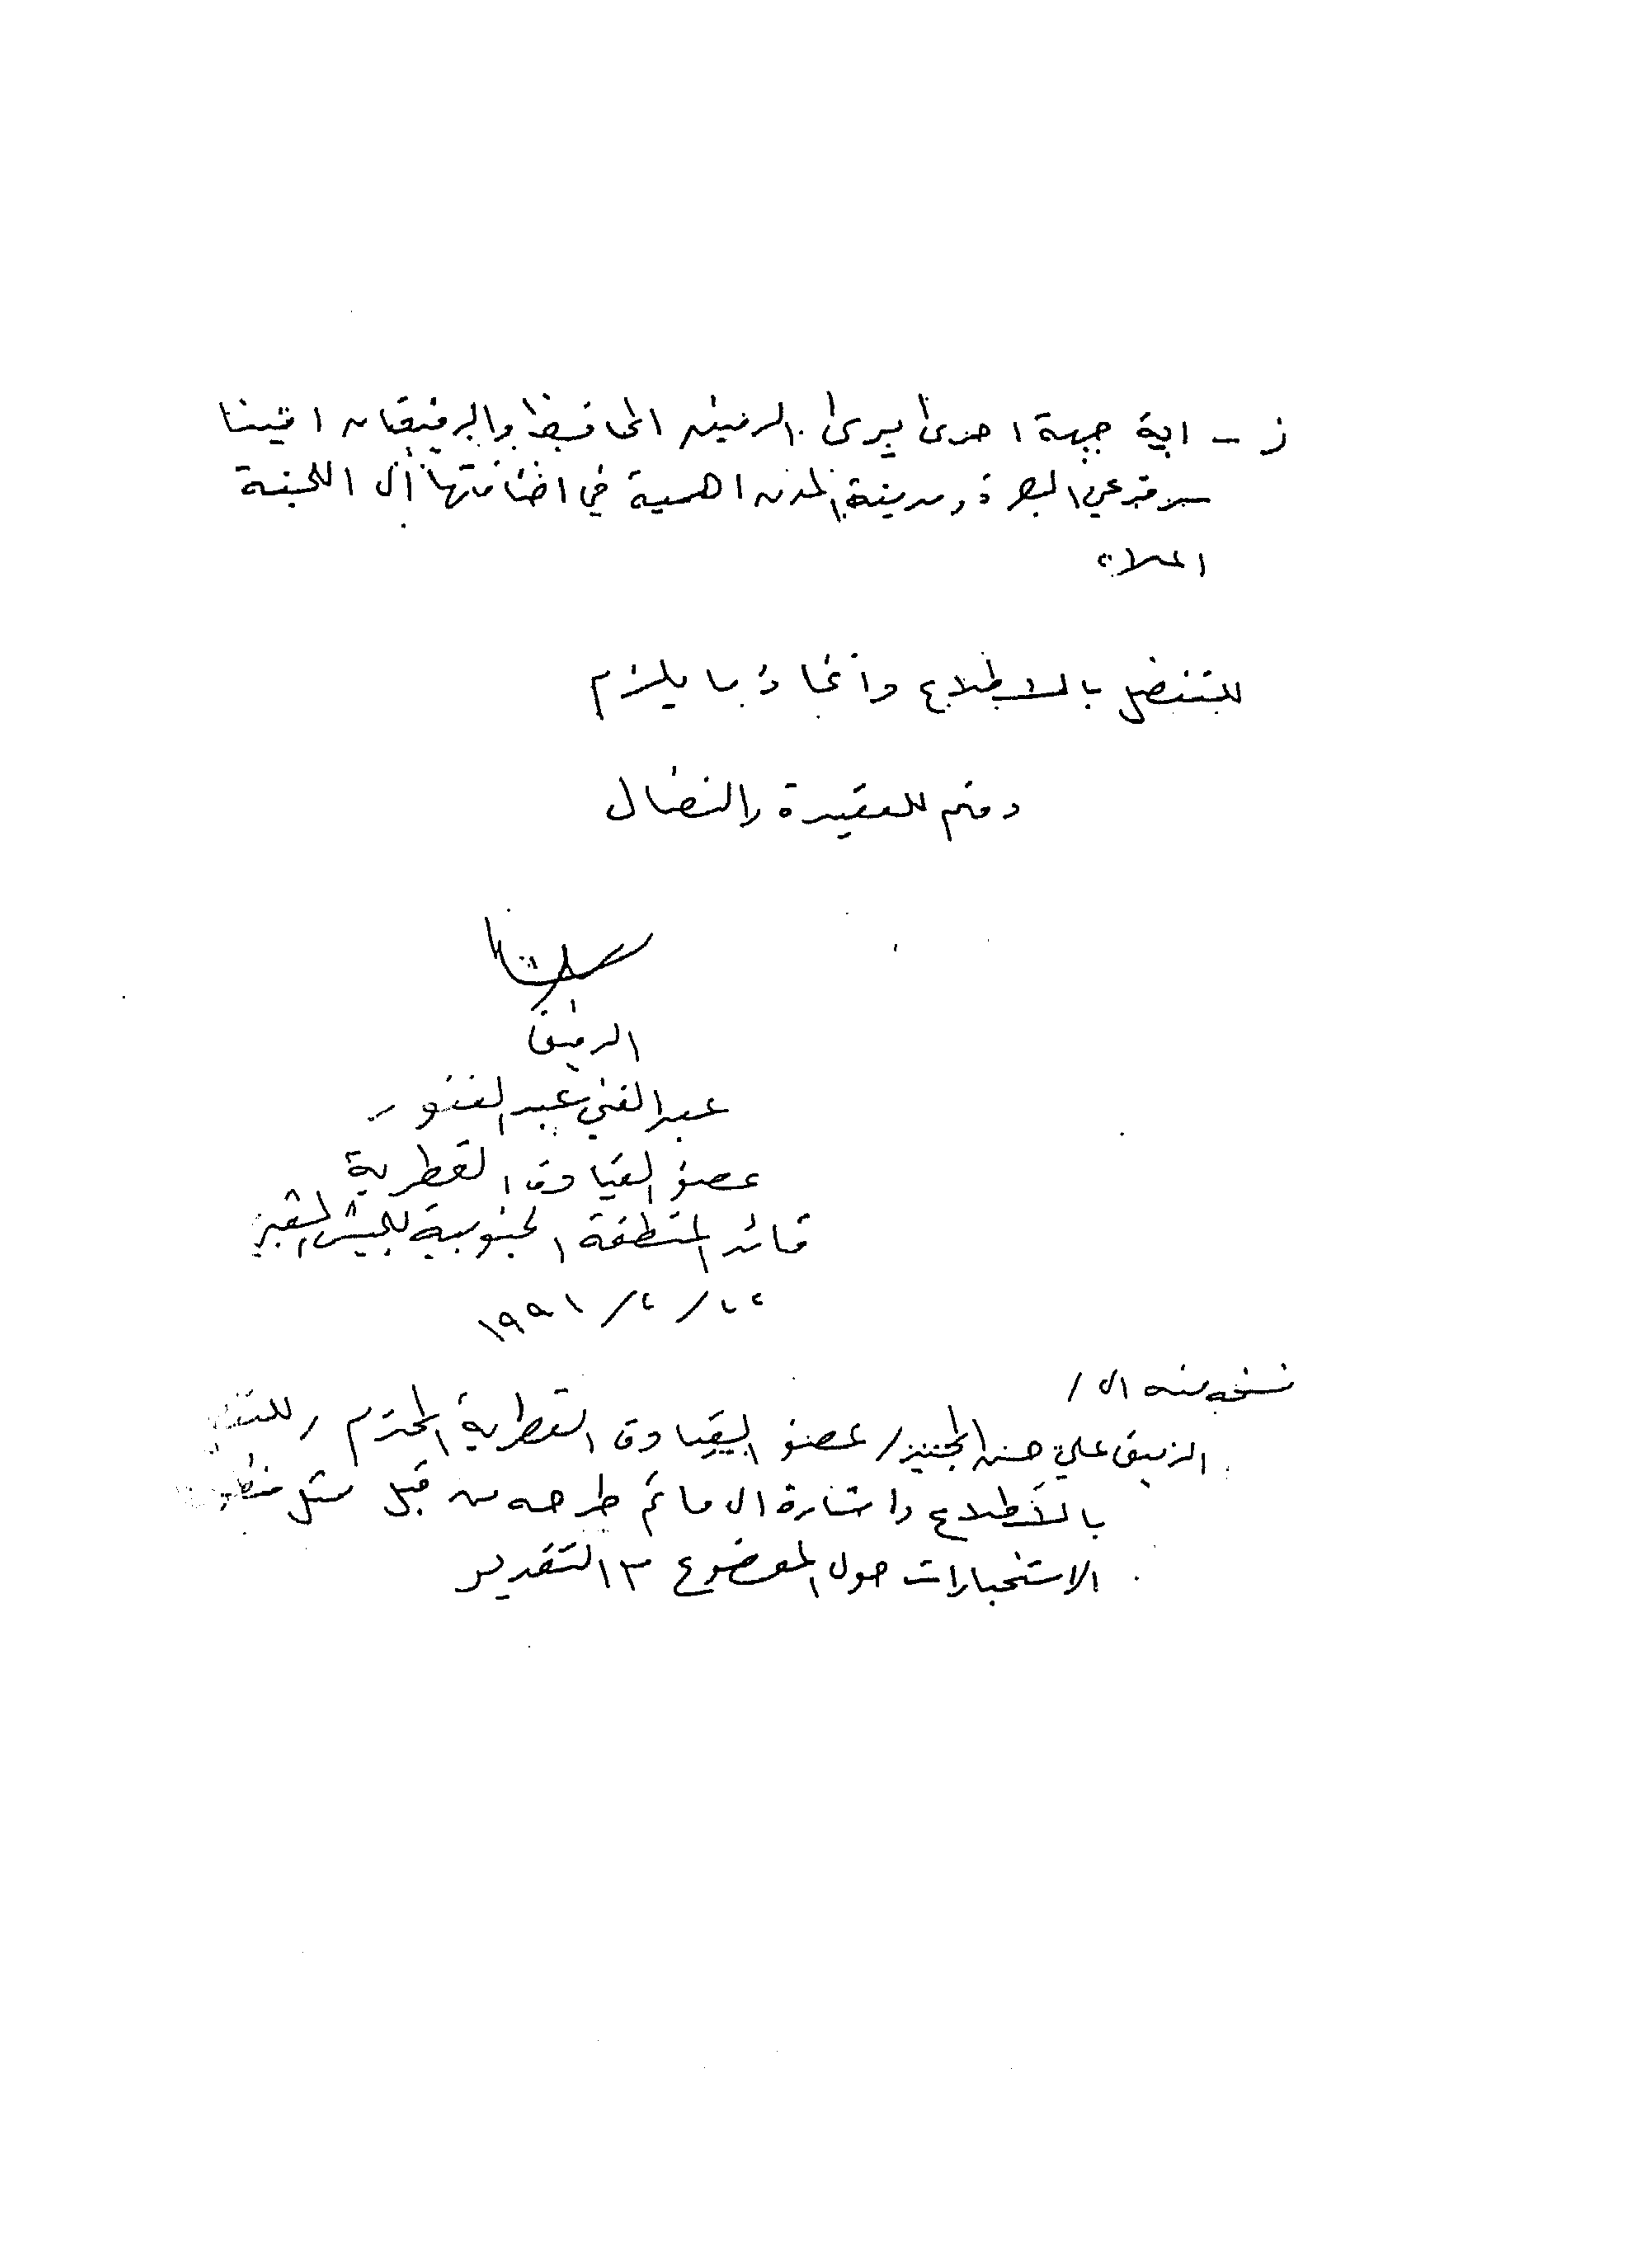 ز - اية جهة اخرى يرى الرفيق المحافظ والرفيقان اميننا
سر فرعي البصرة ومدينة المدن اهمية في اضافتها الى اللجنة
اعلاه
للتفضل بالاطلاع واتخاذ ما يلزم
دمتم للعقيدة والنضال
الرفيق
عبد الغني عبد الغفور
عضو القيادة القطرية
قائد المنطقة الجنوبية للجيش الشعبي
١٩٩١/٢/٢٢
نسخه منه الى /
الرفيق علي حسن المجيد / عضو القيادة القطرية المحترم /
بالاطلاع واشارة الى ما تم طرحه من قبل ممثل
الاستخبارات حول الموضوع مع التقدير